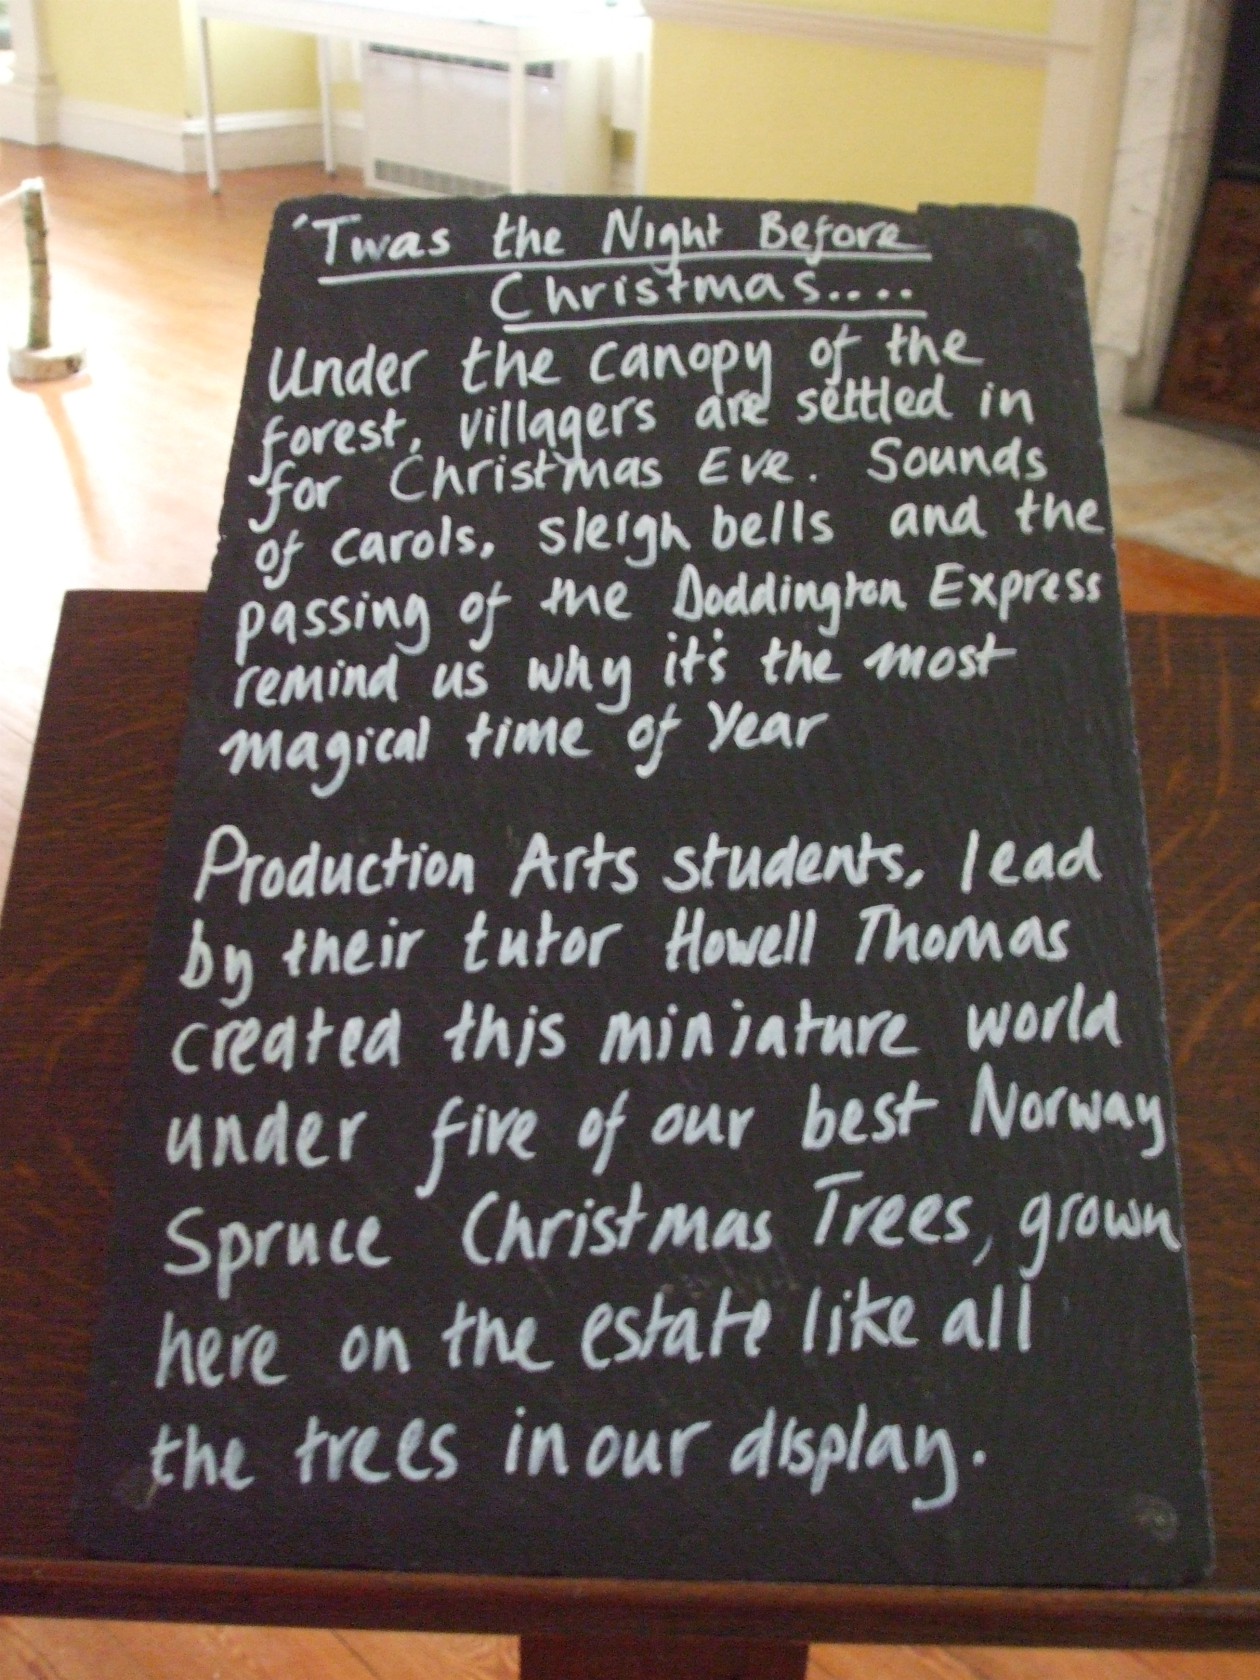 'Twas the Night Before
Christmas....
Under the canopy of the
forest, villagers are settled in
for Christmas Eve. Sounds
of carols, sleigh bells and the
passing of the Doddington Express
remind us why it's the most
magical time of year
Production Arts students, lead
by their tutor Howell Thomas
created this miniature world
under five of our best Norway
Spruce Christmas Trees, grown
here on the estate like all
the trees in our display.